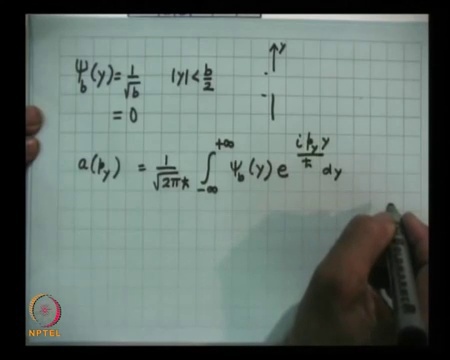 ψ_b(y) = 1/√b |y| < b/2
= 0
y
a(p_y) = 1/√(2πħ) ∫_{-∞}^{+∞} ψ_b(y) e^{i p_y y/ħ} dy
NPTEL